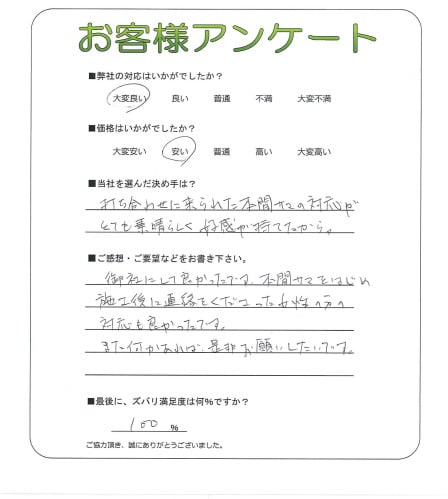 お客様アンケート
■弊社の対応はいかがでしたか？
大変良い 良い 普通 不満 大変不満
■価格はいかがでしたか？
大変安い 安い 普通 高い 大変高い
■当社を選んだ決め手は？
打ち合わせに来られた本間サマの対応が
とても素晴らしく好感が持てたから。
■ご感想・ご要望などをお書き下さい。
御社にして良かったです。本間サマをはじめ
施工後に連絡をくださった女性の方の
対応も良かったです。
また何かあれば、是非お願いしたいです。
■最後に、ズバリ満足度は何%ですか？
100 %
ご協力頂き、誠にありがとうございました。